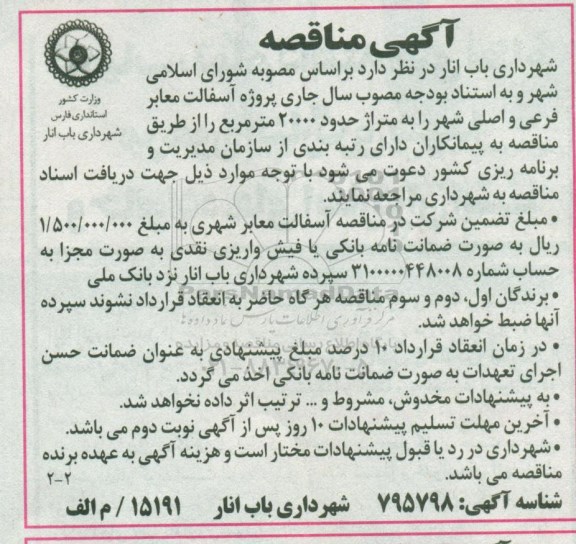 آگهی مناقصه
وزارت کشور
استانداری فارس
شهرداری باب انار
شهرداری باب انار در نظر دارد براساس مصوبه شورای اسلامی
شهر و به استناد بودجه مصوب سال جاری پروژه آسفالت معابر
فرعی و اصلی شهر را به متراژ حدود ۲۰۰۰۰ مترمربع را از طریق
مناقصه به پیمانکاران دارای رتبه بندی از سازمان مدیریت و
برنامه ریزی کشور دعوت می شود با توجه موارد ذیل جهت دریافت اسناد
مناقصه به شهرداری مراجعه نمایند.
• مبلغ تضمین شرکت در مناقصه آسفالت معابر شهری به مبلغ ۱/۵۰۰/۰۰۰/۰۰۰
ریال به صورت ضمانت نامه بانکی یا فیش واریزی نقدی به صورت مجزا به
حساب شماره ۳۱۰۰۰۰۰۴۴۸۰۰۸ سپرده شهرداری باب انار نزد بانک ملی
• برندگان اول، دوم و سوم مناقصه هر گاه حاضر به انعقاد قرارداد نشوند سپرده
آنها ضبط خواهد شد.
• در زمان انعقاد قرارداد ۱۰ درصد مبلغ پیشنهادی به عنوان ضمانت حسن
اجرای تعهدات به صورت ضمانت نامه بانکی اخذ می گردد.
• به پیشنهادات مخدوش، مشروط و ... ترتیب اثر داده نخواهد شد.
• آخرین مهلت تسلیم پیشنهادات ۱۰ روز پس از آگهی نوبت دوم می باشد.
• شهرداری در رد یا قبول پیشنهادات مختار است و هزینه آگهی به عهده برنده
مناقصه می باشد.
۲-۲
شناسه آگهی: ۷۹۵۷۹۸ شهرداری باب انار ۱۵۱۹۱ / م الف